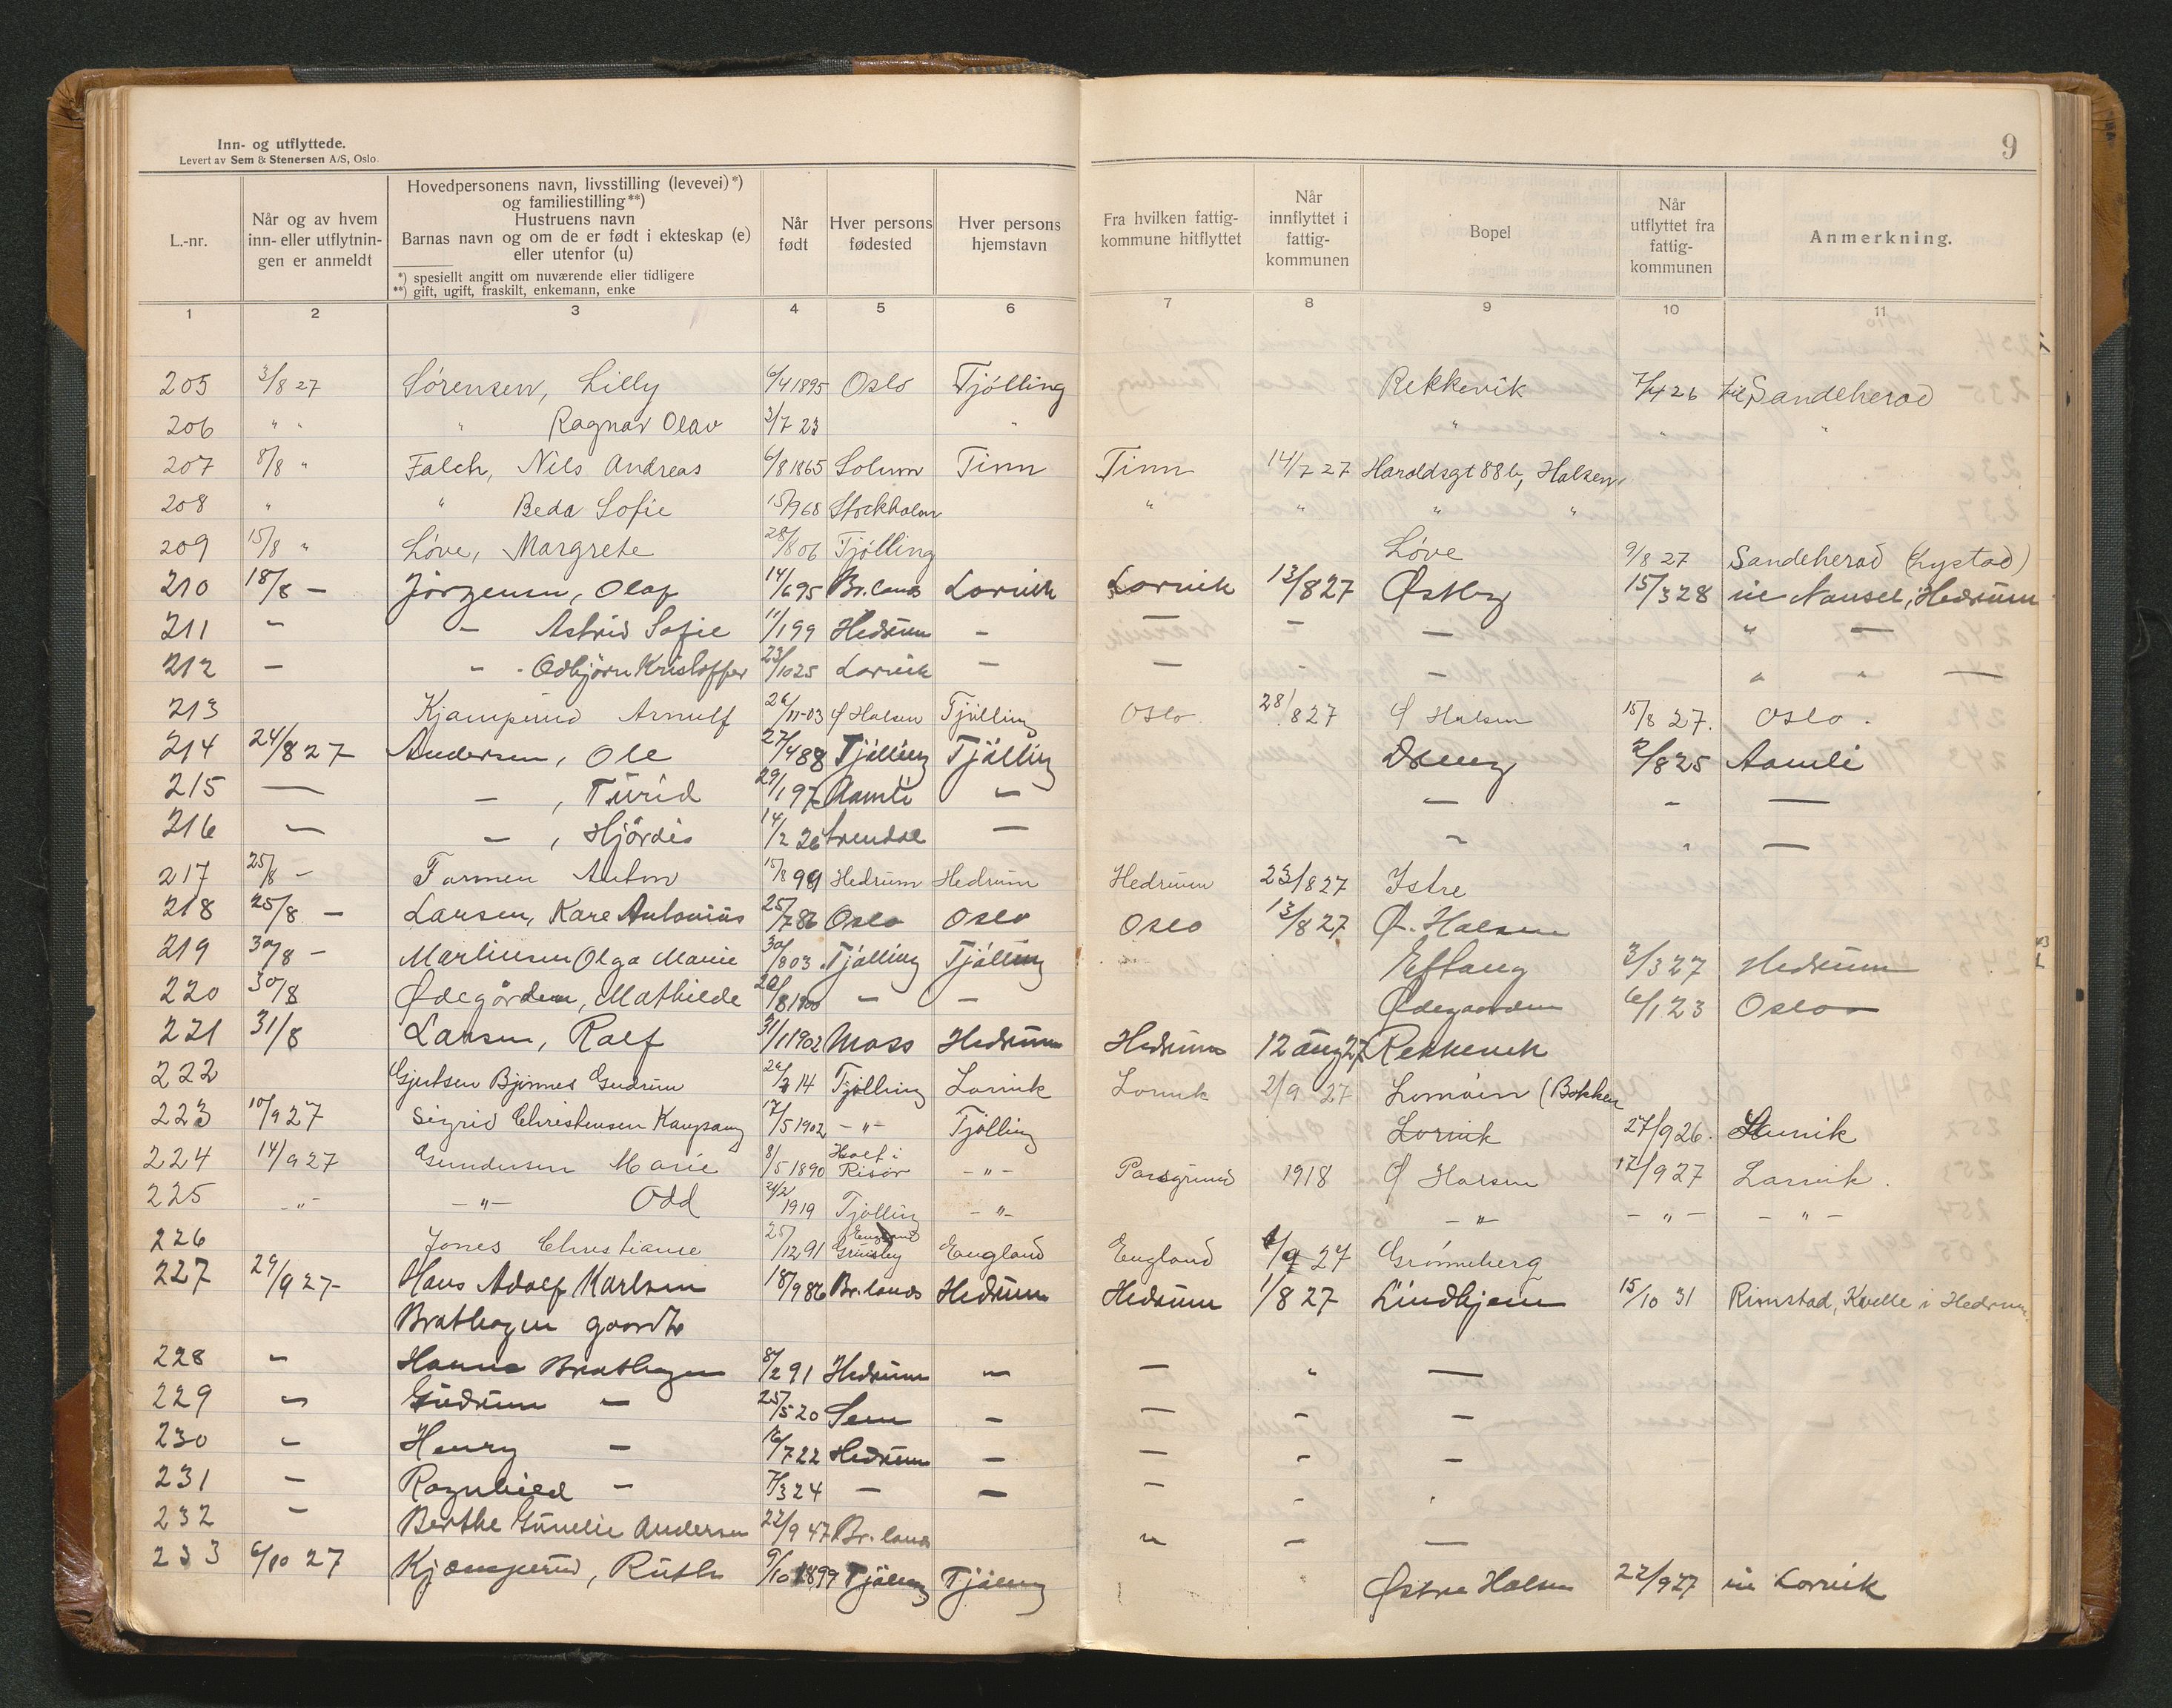 Inn- og utflyttede.
Levert av Sem & Stenersen A/S, Oslo.
9
L.-nr.
Når og av hvem inn- eller utflytnin-gen er anmeldt
Hovedpersonens navn, livsstilling (levevei)*)
og familiestilling**)
Hustruens navn
Barnas navn og om de er født i ekteskap (e)
eller utenfor (u)
*) spesiellt angitt om nuværende eller tidligere
**) gift, ugift, fraskilt, enkemann, enke
Når født
Hver persons fødested
Hver persons hjemstavn
Fra hvilken fattig-kommune hitflyttet
Når innflyttet i fattig-kommunen
Bopel
Når utflyttet fra fattig-kommunen
Anmerkning.
1 2 3 4 5 6 7 8 9 10 11
205 3/8 27 Sörensen, Lilly 6/4 1895 Oslo Tjölling Rekkevik 7/4 26 til Sandeherad
206 " " " Ragnar Olav 3/7 23 " " " "
207 8/8 " Falch, Nils Andreas 6/8 1865 Solum Tinn Tinn 14/7 27 Haraldsgt 88b, Halsen
208 " " Beda Sofie 15/9 68 Stockholm " " " "
209 15/8 " Löve, Margrete 28/8 06 Tjölling Löve 9/8 27 Sandeherad (Lystad)
210 18/8 - Jörgensen, Olaf 14/6 95 Br.lanes Larvik Larvik 13/8 27 Østby 15/3 28 til Nanset, Hedrum
211 - - Astrid Sofie 11/1 99 Hedrum - - - - " -
212 - - - Odbjörn Kristoffer 23/10 25 Larvik - - - - " " -
213 Kjampsund Arnulf 26/11-03 Ø Halsen Tjölling Oslo. 28/8 27 Ø Halsen 15/8 27. Oslo.
214 24/8 27 Andersen, Ole 27/4 88 Tjölling Tjölling 2/8 25 Aamli
215 - - , Turid 29/1 97 Aamli - - - -
216 - - , Hjördis 14/2 26 Arendal - - " -
217 25/8 - Farmen Anton 15/8 99 Hedrum Hedrum Hedrum 23/8 27 Istre
218 25/8 - Larsen, Kare Antonius 25/7 86 Oslo Oslo Oslo 13/8 27 Ø. Halsen
219 30/8 - Martinsen Olga Marie 30/8 03 Tjölling Tjölling Eftang 3/3 27 Hedrum
220 30/8 Ødegården, Mathilde 20/8 1900 - - Ødegaarden 6/1 23 Oslo
221 31/8 Larsen, Ralf 31/1 1902 Moss Hedrum Hedrum 12 aug 27 Rekkevik
222 Gjertsen Bjönnes Gudrun 14 Tjölling Larvik Larvik 2/9 27 (Bokken
223 10/9 27 Sigrid Christensen Kaupang 17/5 1902 - " - Tjölling Larvik 27/9 26. Larvik
224 14/9 27 Gundersen Marie 8/5 1890 Holt i Risör - " - Porsgrund 1918 Ø Halsen 12/9 27 Larvik.
225 - " - - " - Odd 24/2 1919 Tjölling - " - - " - - " - - " -
226 Jones Christianse 25/12 91 England Grimsby England England 1/9 27 Grönneberg
227 29/9 27 Hans Adolf Karlsen 18/9 86 Br.lanes Hedrum Hedrum 1/8 27 Lindhjem 15/10 31 Rimstad, Kvelle i Hedrum.
Brathagen gaardbr
228 - Hanna Brathagen 8/2 91 Hedrum - - " -
229 - Gudrun - 25/5 20 Sem - - - -
230 - Henry - 16/7 22 Hedrum - - - -
231 - Ragnhild - 7/3 24 - - - - -
232 - Berthe Gunelie Andersen 22/9 47 Br.lanes - - -
233 6/10 27 Kjampsund, Ruth 9/10 1899 Tjölling Tjölling Østre Halsen 22/9 27 til Larvik